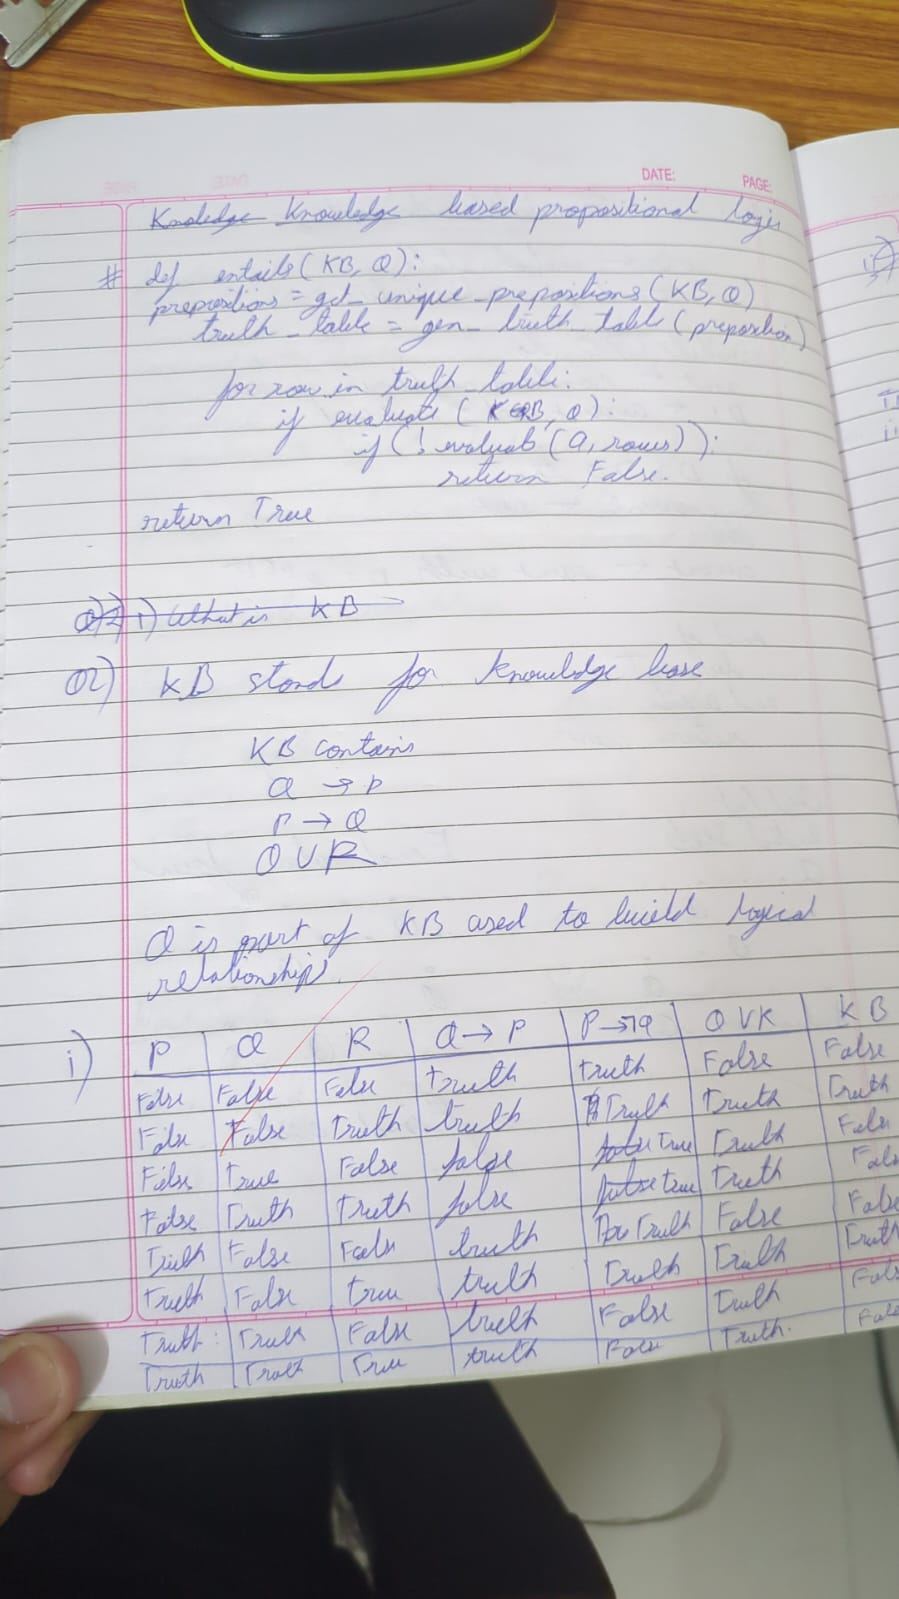 DATE:
PAGE:
Knoledge Knowledge based propositional logic
# def entails(KB, Q):
prepositions = get_unique_prepositions(KB, Q)
truth_table = gen_truth_table(preposition)
for row in truth_table:
if evaluate (KB, Q):
if (! evaluate (Q, rows)):
return False.
return True
Q2) i) What is KB
Q2) KB stands for knowledge base
KB contains
Q → P
P → Q
Q ∪ R
Q is part of KB used to build logical
relationships.
i) P | Q | R | Q → P | P → ¬Q | Q V R | KB
False | False | False | Truth | Truth | False | False
False | False | Truth | truth | Truth | Truth | Truth
False | True | False | false | false True | Truth | False
False | Truth | Truth | false | false true | Truth | False
Truth | False | False | truth | Truth | False | False
Truth | False | true | truth | Truth | Truth | Truth
Truth | Truth | False | truth | False | Truth | False
Truth | Truth | True | truth | False | Truth. | False